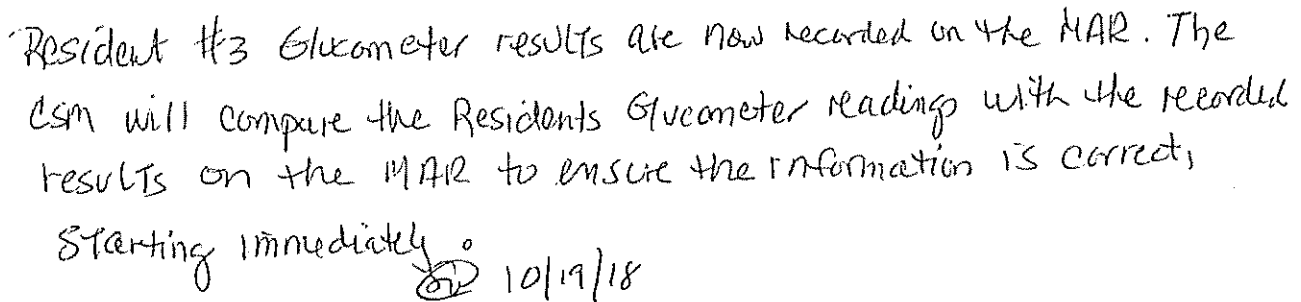 Resident #3 Glucometer results are now recorded on the MAR. The
CSM will compare the Residents Glucometer readings with the recorded
results on the MAR to ensure the information is correct,
Starting immediately.
10/19/18